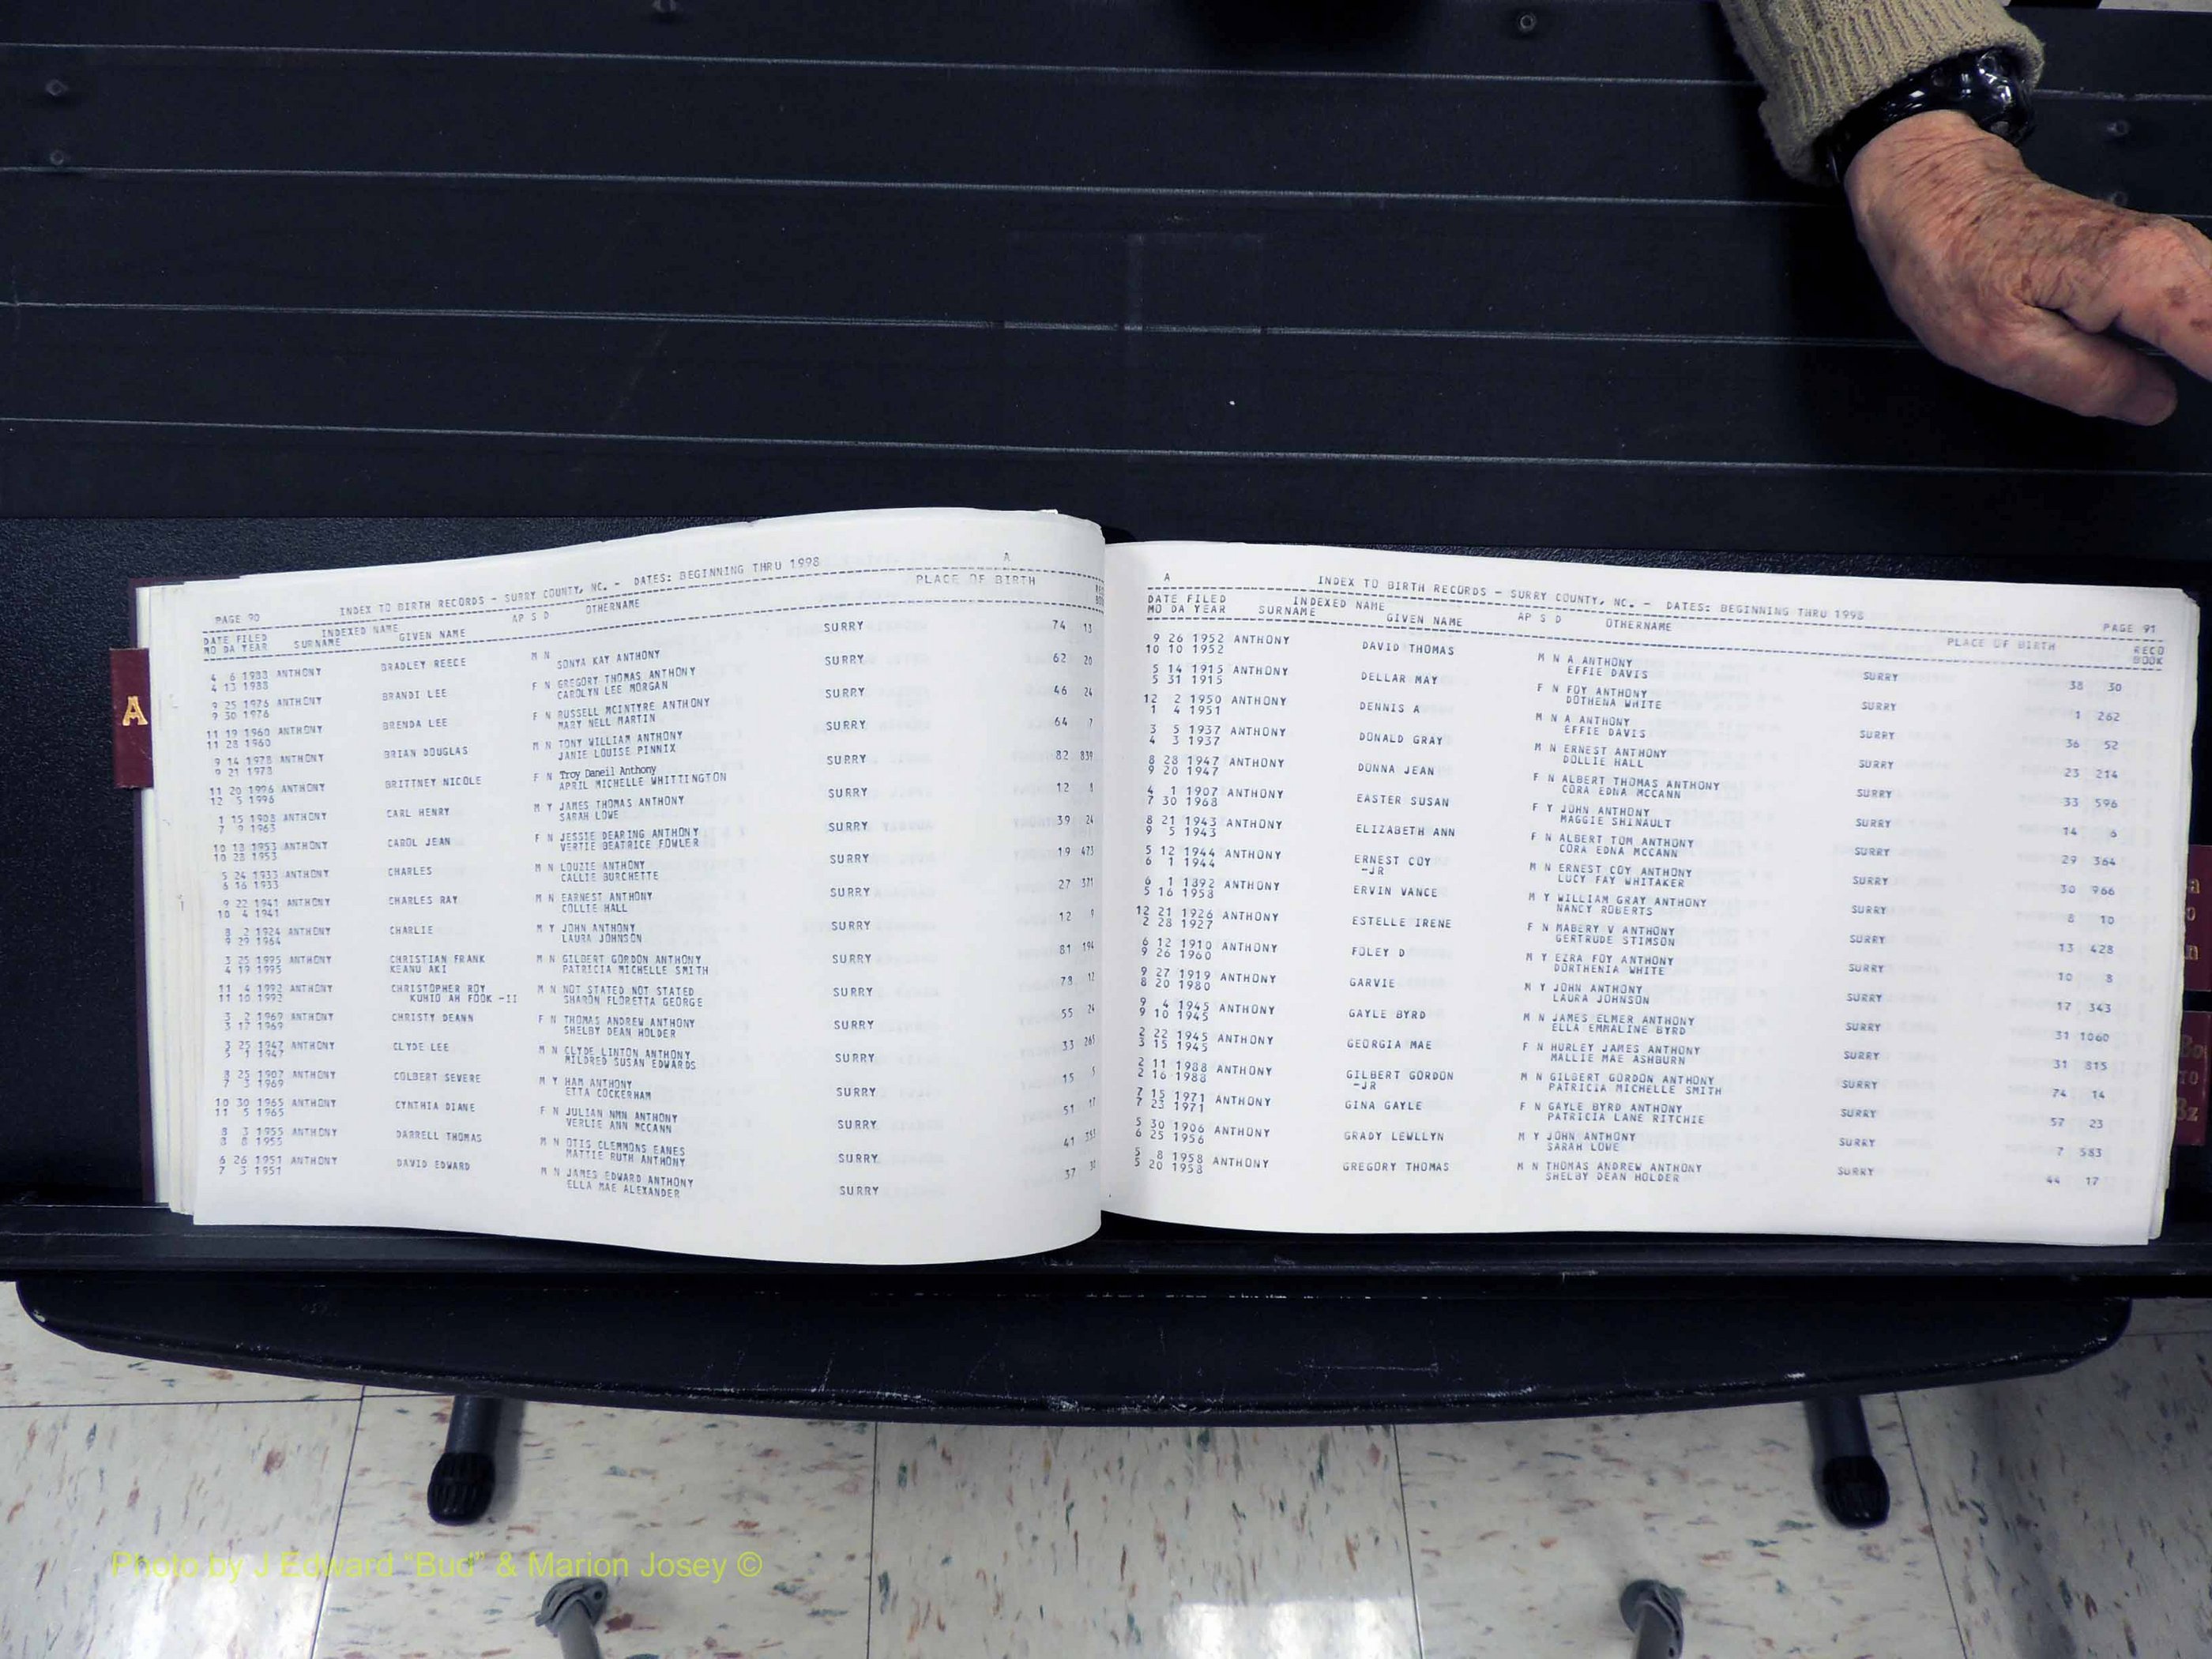 A
PAGE 90 INDEX TO BIRTH RECORDS - SURRY COUNTY, NC. - DATES: BEGINNING THRU 1998 A
DATE FILED INDEXED NAME AP S D OTHERNAME PLACE OF BIRTH
MO DA YEAR SURNAME GIVEN NAME
4 6 1988 ANTHONY BRADLEY REECE M N SURRY 74 13
4 13 1988 SONYA KAY ANTHONY
9 25 1976 ANTHONY BRANDI LEE F N GREGORY THOMAS ANTHONY SURRY 62 20
9 30 1976 CAROLYN LEE MORGAN
11 19 1960 ANTHONY BRENDA LEE F N RUSSELL MCINTYRE ANTHONY SURRY 46 24
11 28 1960 MARY NELL MARTIN
9 14 1978 ANTHONY BRIAN DOUGLAS M N TONY WILLIAM ANTHONY SURRY 64 7
9 21 1978 JANIE LOUISE PINNIX
11 20 1996 ANTHONY BRITTNEY NICOLE F N Troy Daneil Anthony SURRY 82 839
12 5 1996 APRIL MICHELLE WHITTINGTON
1 15 1908 ANTHONY CARL HENRY M Y JAMES THOMAS ANTHONY SURRY 12
7 9 1963 SARAH LOWE
10 13 1953 ANTHONY CAROL JEAN F N JESSIE DEARING ANTHONY SURRY 39 24
10 28 1953 VERTIE BEATRICE FOWLER
5 24 1933 ANTHONY CHARLES M N LOUZIE ANTHONY SURRY 19 473
6 16 1933 CALLIE BURCHETTE
9 22 1941 ANTHONY CHARLES RAY M N EARNEST ANTHONY SURRY 27 371
10 4 1941 COLLIE HALL
8 2 1924 ANTHONY CHARLIE M Y JOHN ANTHONY SURRY 12
9 29 1964 LAURA JOHNSON
3 25 1995 ANTHONY CHRISTIAN FRANK M N GILBERT GORDON ANTHONY SURRY 81 194
4 19 1995 KEANU AKI PATRICIA MICHELLE SMITH
11 4 1992 ANTHONY CHRISTOPHER ROY M N NOT STATED NOT STATED SURRY 78
11 10 1992 KUHIO AH FOOK -II SHARON FLORETTA GEORGE
3 2 1969 ANTHONY CHRISTY DEANN F N THOMAS ANDREW ANTHONY SURRY 55
3 17 1969 SHELBY DEAN HOLDER
3 25 1947 ANTHONY CLYDE LEE M N CLYDE LINTON ANTHONY SURRY 33
5 1 1947 MILDRED SUSAN EDWARDS
8 25 1907 ANTHONY COLBERT SEVERE M Y HAM ANTHONY SURRY 15
7 3 1969 ETTA COCKERHAM
10 30 1965 ANTHONY CYNTHIA DIANE F N JULIAN NMN ANTHONY SURRY 51
11 5 1965 VERLIE ANN MCCANN
8 3 1955 ANTHONY DARRELL THOMAS M N OTIS CLEMMONS EANES SURRY 41
8 8 1955 MATTIE RUTH ANTHONY
6 26 1951 ANTHONY DAVID EDWARD M N JAMES EDWARD ANTHONY SURRY 37
7 3 1951 ELLA MAE ALEXANDER
A INDEX TO BIRTH RECORDS - SURRY COUNTY, NC. - DATES: BEGINNING THRU 1998 PAGE 91
DATE FILED INDEXED NAME AP S D OTHERNAME PLACE OF BIRTH RECO
MO DA YEAR SURNAME GIVEN NAME BOOK
9 26 1952 ANTHONY DAVID THOMAS M N A ANTHONY SURRY 38 30
10 10 1952 EFFIE DAVIS
5 14 1915 ANTHONY DELLAR MAY F N FOY ANTHONY SURRY 1 262
5 31 1915 DOTHENA WHITE
12 2 1950 ANTHONY DENNIS A M N A ANTHONY SURRY 36 52
1 4 1951 EFFIE DAVIS
3 5 1937 ANTHONY DONALD GRAY M N ERNEST ANTHONY SURRY 23 214
4 3 1937 DOLLIE HALL
8 28 1947 ANTHONY DONNA JEAN F N ALBERT THOMAS ANTHONY SURRY 33 596
9 20 1947 CORA EDNA MCCANN
4 1 1907 ANTHONY EASTER SUSAN F Y JOHN ANTHONY SURRY 14 6
7 30 1968 MAGGIE SHINAULT
8 21 1943 ANTHONY ELIZABETH ANN F N ALBERT TOM ANTHONY SURRY 29 364
9 5 1943 CORA EDNA MCCANN
5 12 1944 ANTHONY ERNEST COY M N ERNEST COY ANTHONY SURRY 30 966
6 1 1944 -JR LUCY FAY WHITAKER
6 1 1892 ANTHONY ERVIN VANCE M Y WILLIAM GRAY ANTHONY SURRY 8 10
5 16 1958 NANCY ROBERTS
12 21 1926 ANTHONY ESTELLE IRENE F N MABERY V ANTHONY SURRY 13 428
2 28 1927 GERTRUDE STIMSON
6 12 1910 ANTHONY FOLEY D M Y EZRA FOY ANTHONY SURRY 10 8
9 26 1960 DORTHENIA WHITE
9 27 1919 ANTHONY GARVIE M Y JOHN ANTHONY SURRY 17 343
8 20 1980 LAURA JOHNSON
9 4 1945 ANTHONY GAYLE BYRD M N JAMES ELMER ANTHONY SURRY 31 1060
9 10 1945 ELLA EMMALINE BYRD
2 22 1945 ANTHONY GEORGIA MAE F N HURLEY JAMES ANTHONY SURRY 31 815
3 15 1945 MALLIE MAE ASHBURN
2 11 1988 ANTHONY GILBERT GORDON M N GILBERT GORDON ANTHONY SURRY 74 14
2 16 1988 -JR PATRICIA MICHELLE SMITH
7 15 1971 ANTHONY GINA GAYLE F N GAYLE BYRD ANTHONY SURRY 57 23
7 23 1971 PATRICIA LANE RITCHIE
5 30 1906 ANTHONY GRADY LEWLLYN M Y JOHN ANTHONY SURRY 7 583
6 25 1956 SARAH LOWE
5 8 1958 ANTHONY GREGORY THOMAS M N THOMAS ANDREW ANTHONY SURRY 44 17
5 20 1958 SHELBY DEAN HOLDER
Photo by J Edward "Bud" & Marion Josey ©